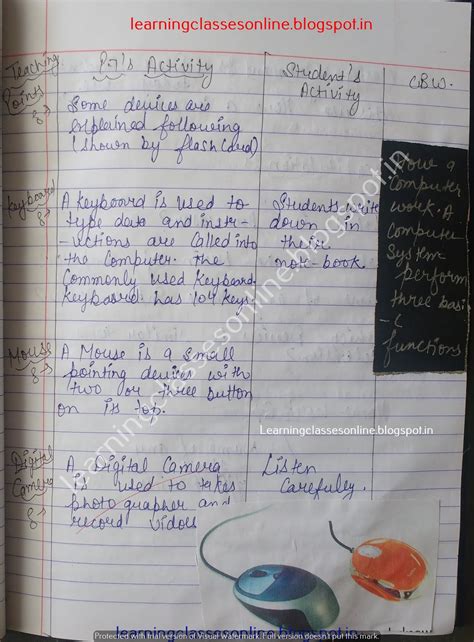 learningclassesonline.blogspot.in
Teaching Points :-
P.T's Activity
Student's Activity
C.B.W.
Some devices are
explained following
(shown by flash card)
Keyboard :-
A keyboard is used to
type data and instr-
-uctions are called into
the computer. the
Commonly used keyboard
keyboard has 104 keys
Students write
down in
their
note-book
How a
Computer
work. A
Computer
System
perform
three basi
-c
functions
Mouse :-
A Mouse is a small
pointing devices with
two or three button
on its top.
Learningclassesonline.blogspot.in
Digital Camera :-
A Digital Camera
is used to takes
photographer and
record vidos
Listen
Carefuley.
learningclassesonline.blogspot.in
Protected with free version of Visual Watermark. Full version doesn't put this mark.
learningclassesonline.blogspot.in